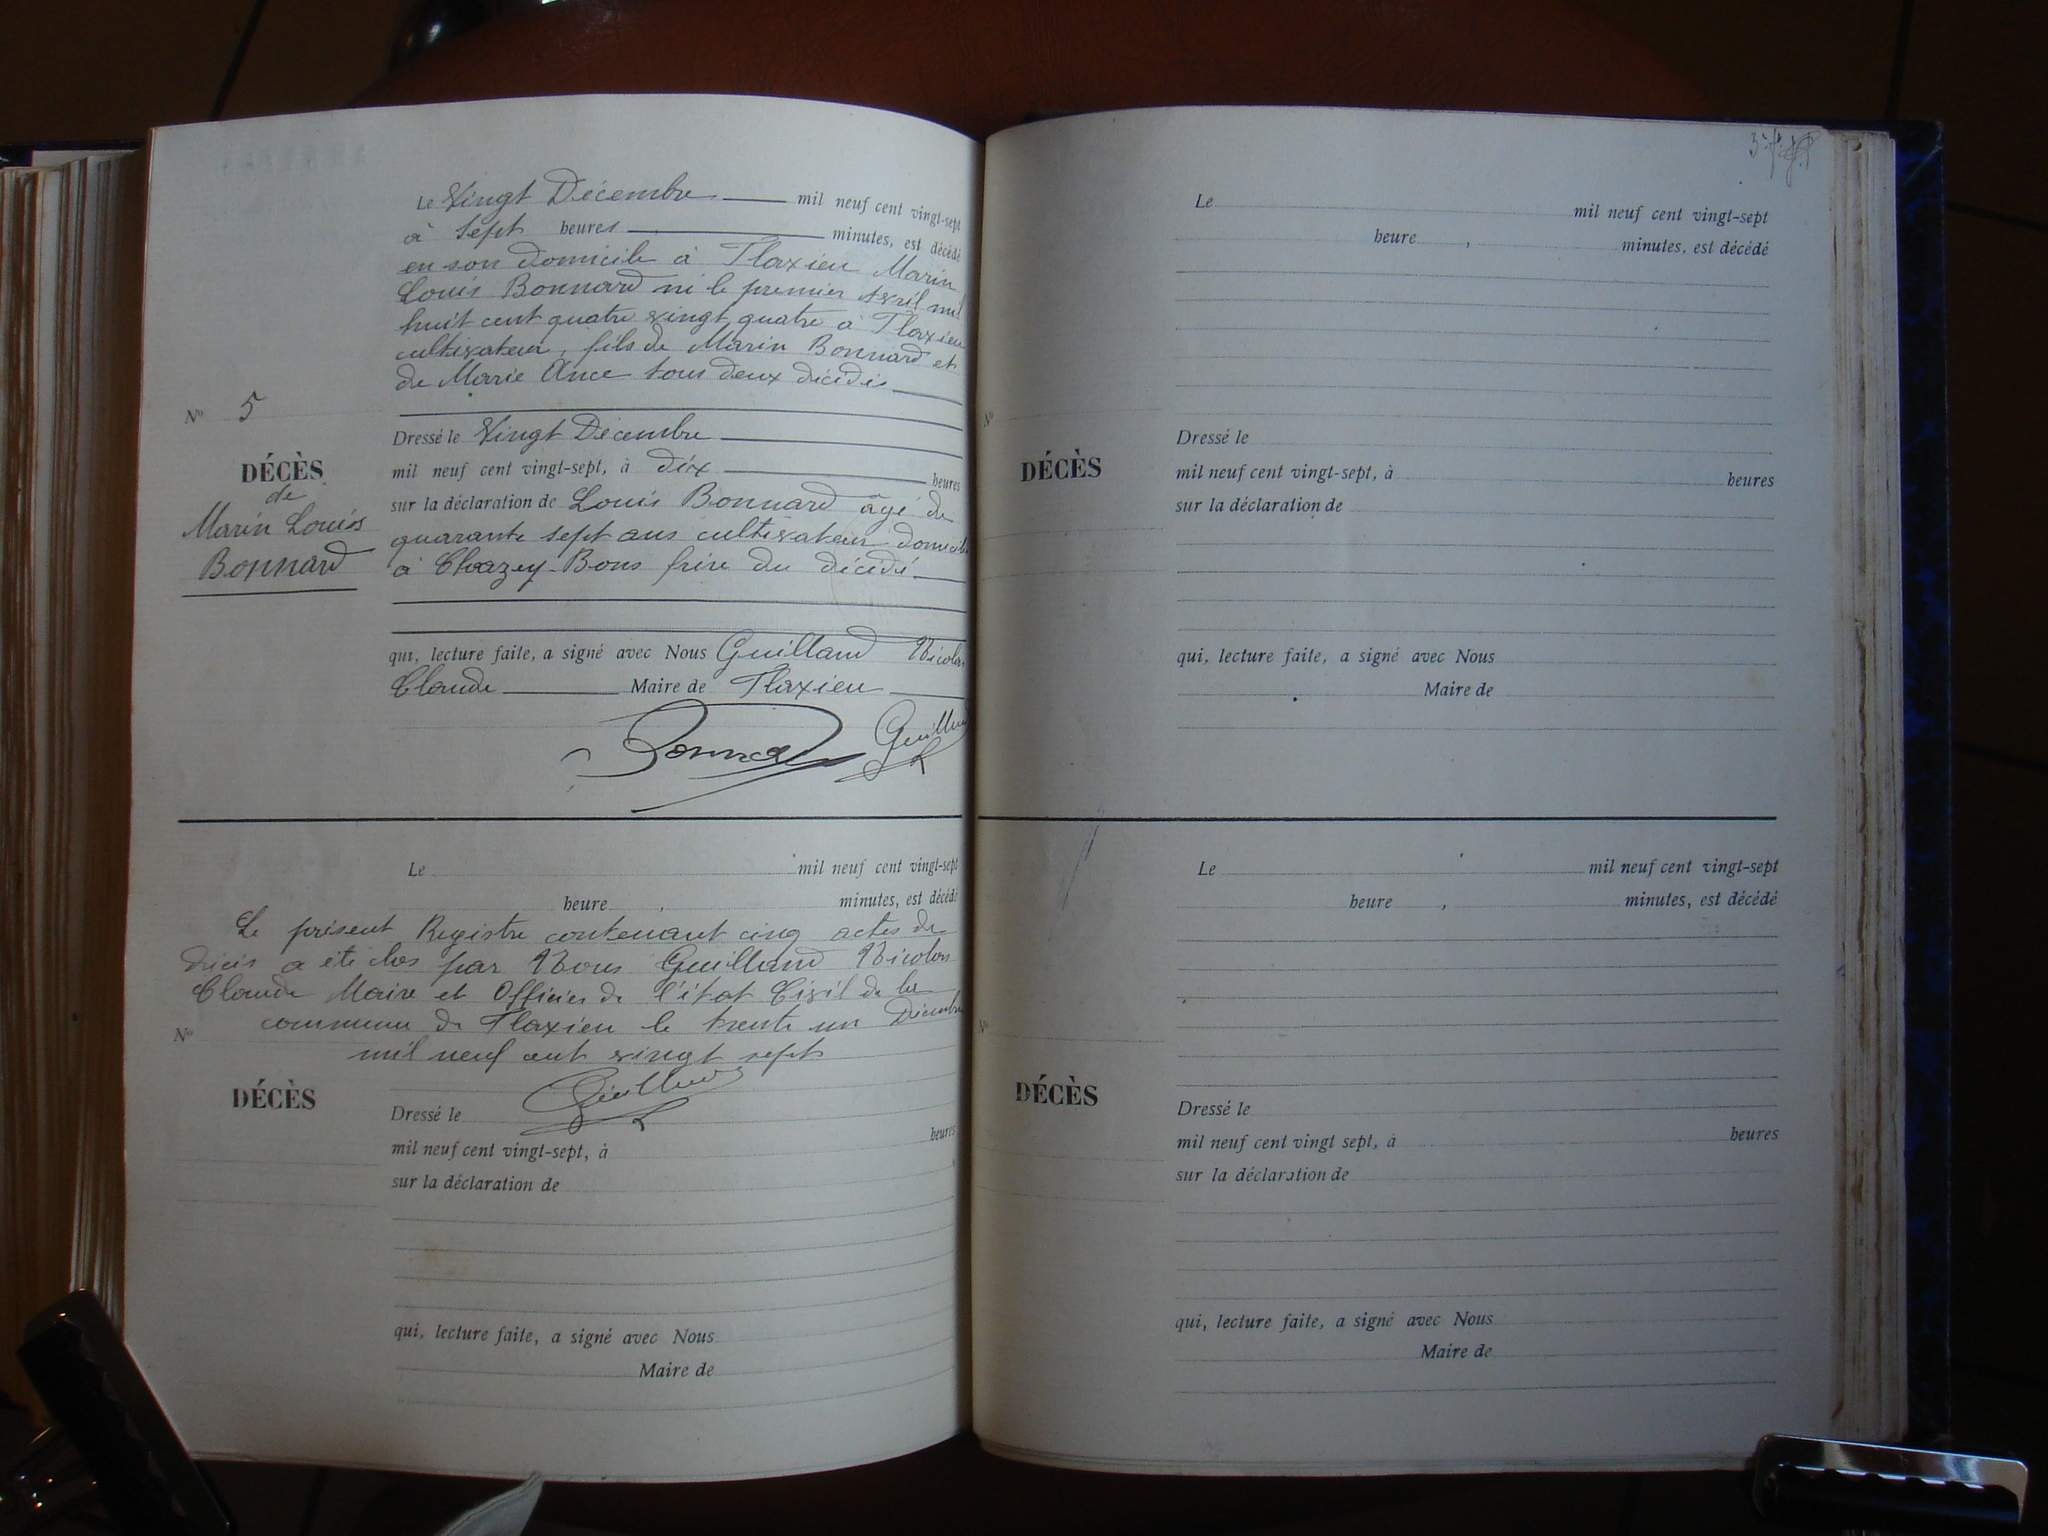 Le Vingt Décembre mil neuf cent vingt-sept
à sept heures minutes, est décédé
en son domicile à Flaxieu Marin
Louis Bonnard né le premier Avril mil
huit cent quatre vingt quatre à Flaxieu
cultivateur, fils de Marin Bonnard et
de Marie Ance tous deux décédés
No 5
DÉCÈS
de
Marin Louis
Bonnard
Dressé le Vingt Décembre
mil neuf cent vingt-sept, à dix heures
sur la déclaration de Louis Bonnard âgé de
quarante sept ans cultivateur domicilié
à Chazey-Bons frère du décédé
qui, lecture faite, a signé avec Nous Guilland Nicolas
Claude Maire de Flaxieu
Bonnard Guilland
Le mil neuf cent vingt-sept
heure , minutes, est décédé
Le présent Registre contenant cinq actes de
décès a été clos par Nous Guilland Nicolas
Claude Maire et Officier de l'état Civil de la
commune de Flaxieu le trente un Décembre
mil neuf cent vingt sept
Guilland
No
DÉCÈS
Dressé le
mil neuf cent vingt-sept, à heures
sur la déclaration de
qui, lecture faite, a signé avec Nous
Maire de
Le mil neuf cent vingt-sept
heure , minutes, est décédé
No
DÉCÈS
Dressé le
mil neuf cent vingt-sept, à heures
sur la déclaration de
qui, lecture faite, a signé avec Nous
Maire de
Le mil neuf cent vingt-sept
heure , minutes, est décédé
No
DÉCÈS
Dressé le
mil neuf cent vingt sept, à heures
sur la déclaration de
qui, lecture faite, a signé avec Nous
Maire de